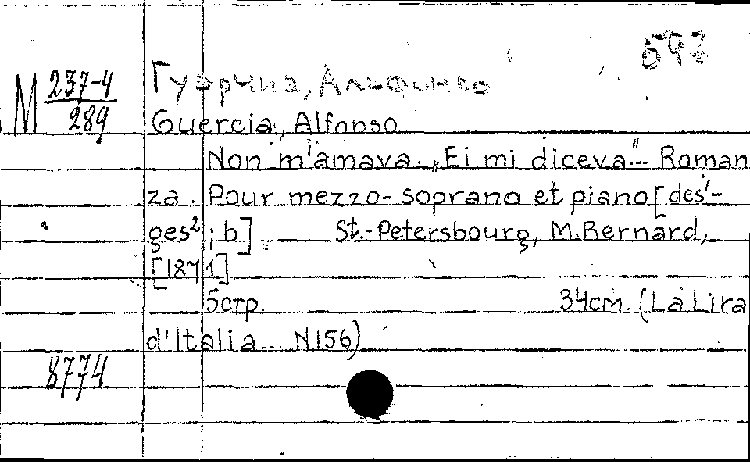 М 237-4/289
Гуэрчиа, Альфонсо
Guercia, Alfonso
Non m'amava. „Ei mi diceva"... Roman
za. Pour mezzo-soprano et piano [des¹-
ges²; b] St.-Petersbourg, M.Bernard,
[1871]
5стр. 34см. (La Lira
d'Italia... N156)
8774